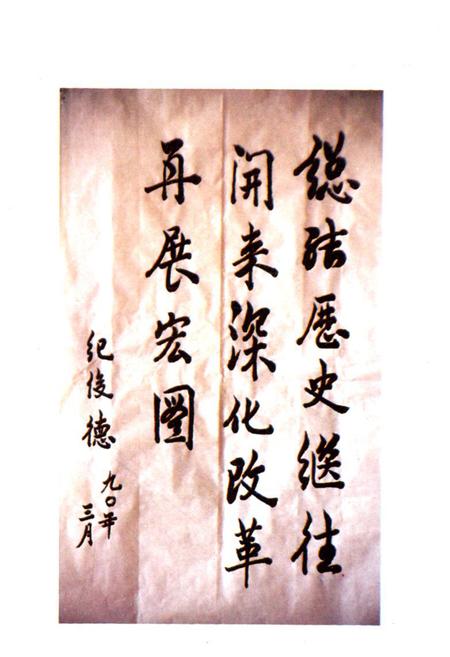 總结歷史繼往
開来深化改革
再展宏圖
纪俊德
九〇年
三月